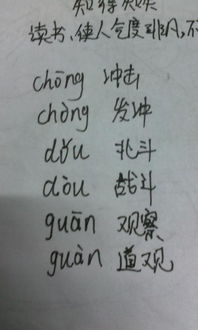 读书,使人气度非凡,不
chōng 冲击
chòng 发冲
dǒu 北斗
dòu 战斗
guān 观察
guàn 道观